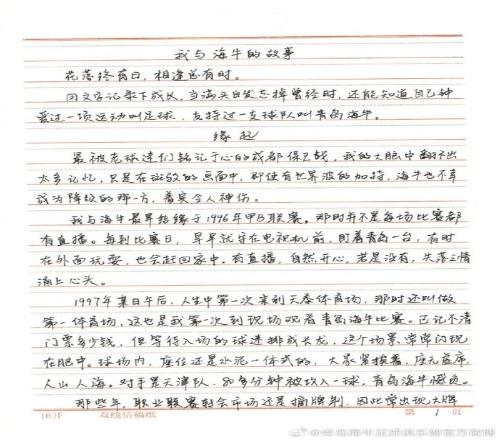 我与海牛的故事
花落终有日，相逢总有时。
用文字记录下成长，当满头白发忘掉曾经时，还能知道自己钟
爱过一项运动叫足球，支持过一支球队叫青岛海牛。
缘起
最被老球迷们铭记于心的成都保卫战，我的大脑中翻不出
太多记忆，只是在斑驳的画面中，即使有世界波的加持，海牛也不幸
成为降级的那一方，着实令人神伤。
我与海牛最早结缘于1996年甲B联赛。那时并不是每场比赛都
有直播。每到比赛日，早早就守在电视机前，盯着青岛一台，有时
在外面玩耍，也会赶回家中。有直播，自然开心，若是没有，失落之情
涌上心头。
1997年某日午后，人生中第一次来到天泰体育场，那时还叫做
第一体育场，这也是我第一次到现场观看青岛海牛比赛。已记不清
门票多少钱，但等待入场的球迷排成长龙，这个场景常常闪现
在脑中。球场内，座位还是水泥一体式的，大家紧挨着，座无虚席，
人山人海。对手是天津队，80多分钟被攻入一球，青岛海牛憾负。
那些年，职业联赛转会市场还是摘牌制，因此常出现大牌
16开
双线信稿纸
第 1 页
@青岛海牛足球俱乐部官方微博